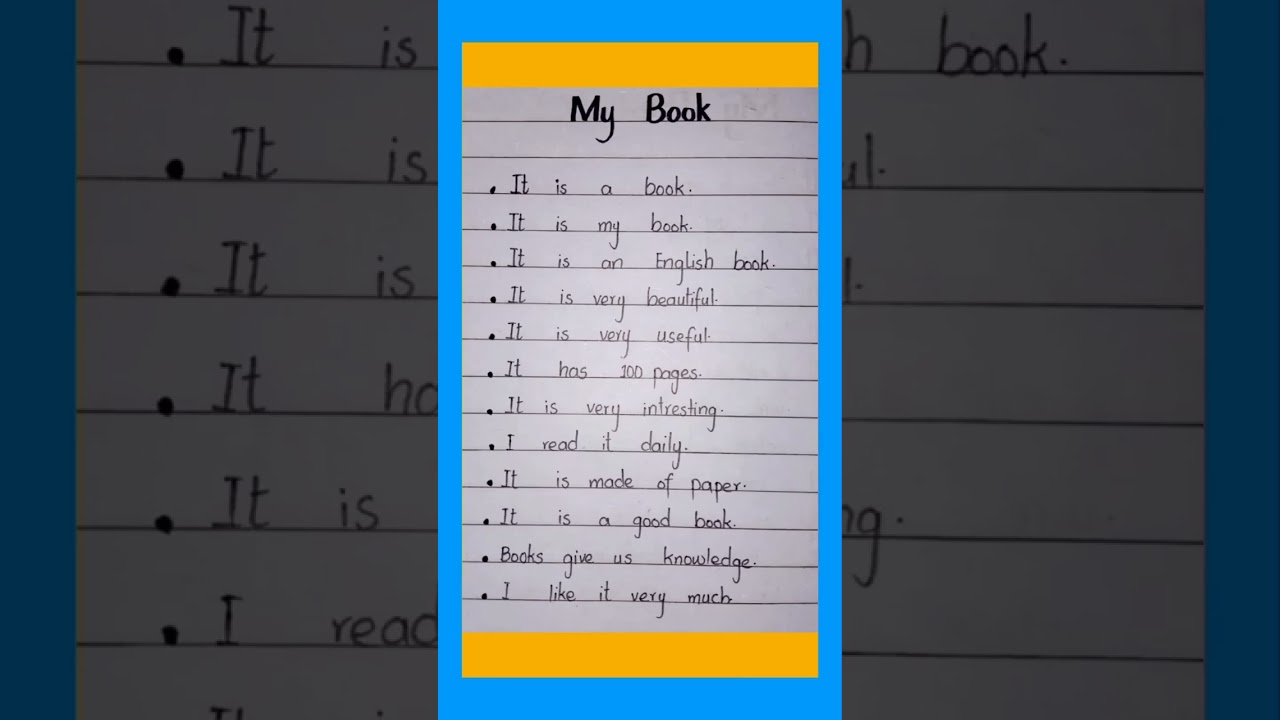 My Book
. It is a book.
. It is my book.
. It is an English book.
. It is very beautiful.
. It is very useful.
. It has 100 pages.
. It is very intresting.
. I read it daily.
. It is made of paper.
. It is a good book.
. Books give us knowledge.
. I like it very much.